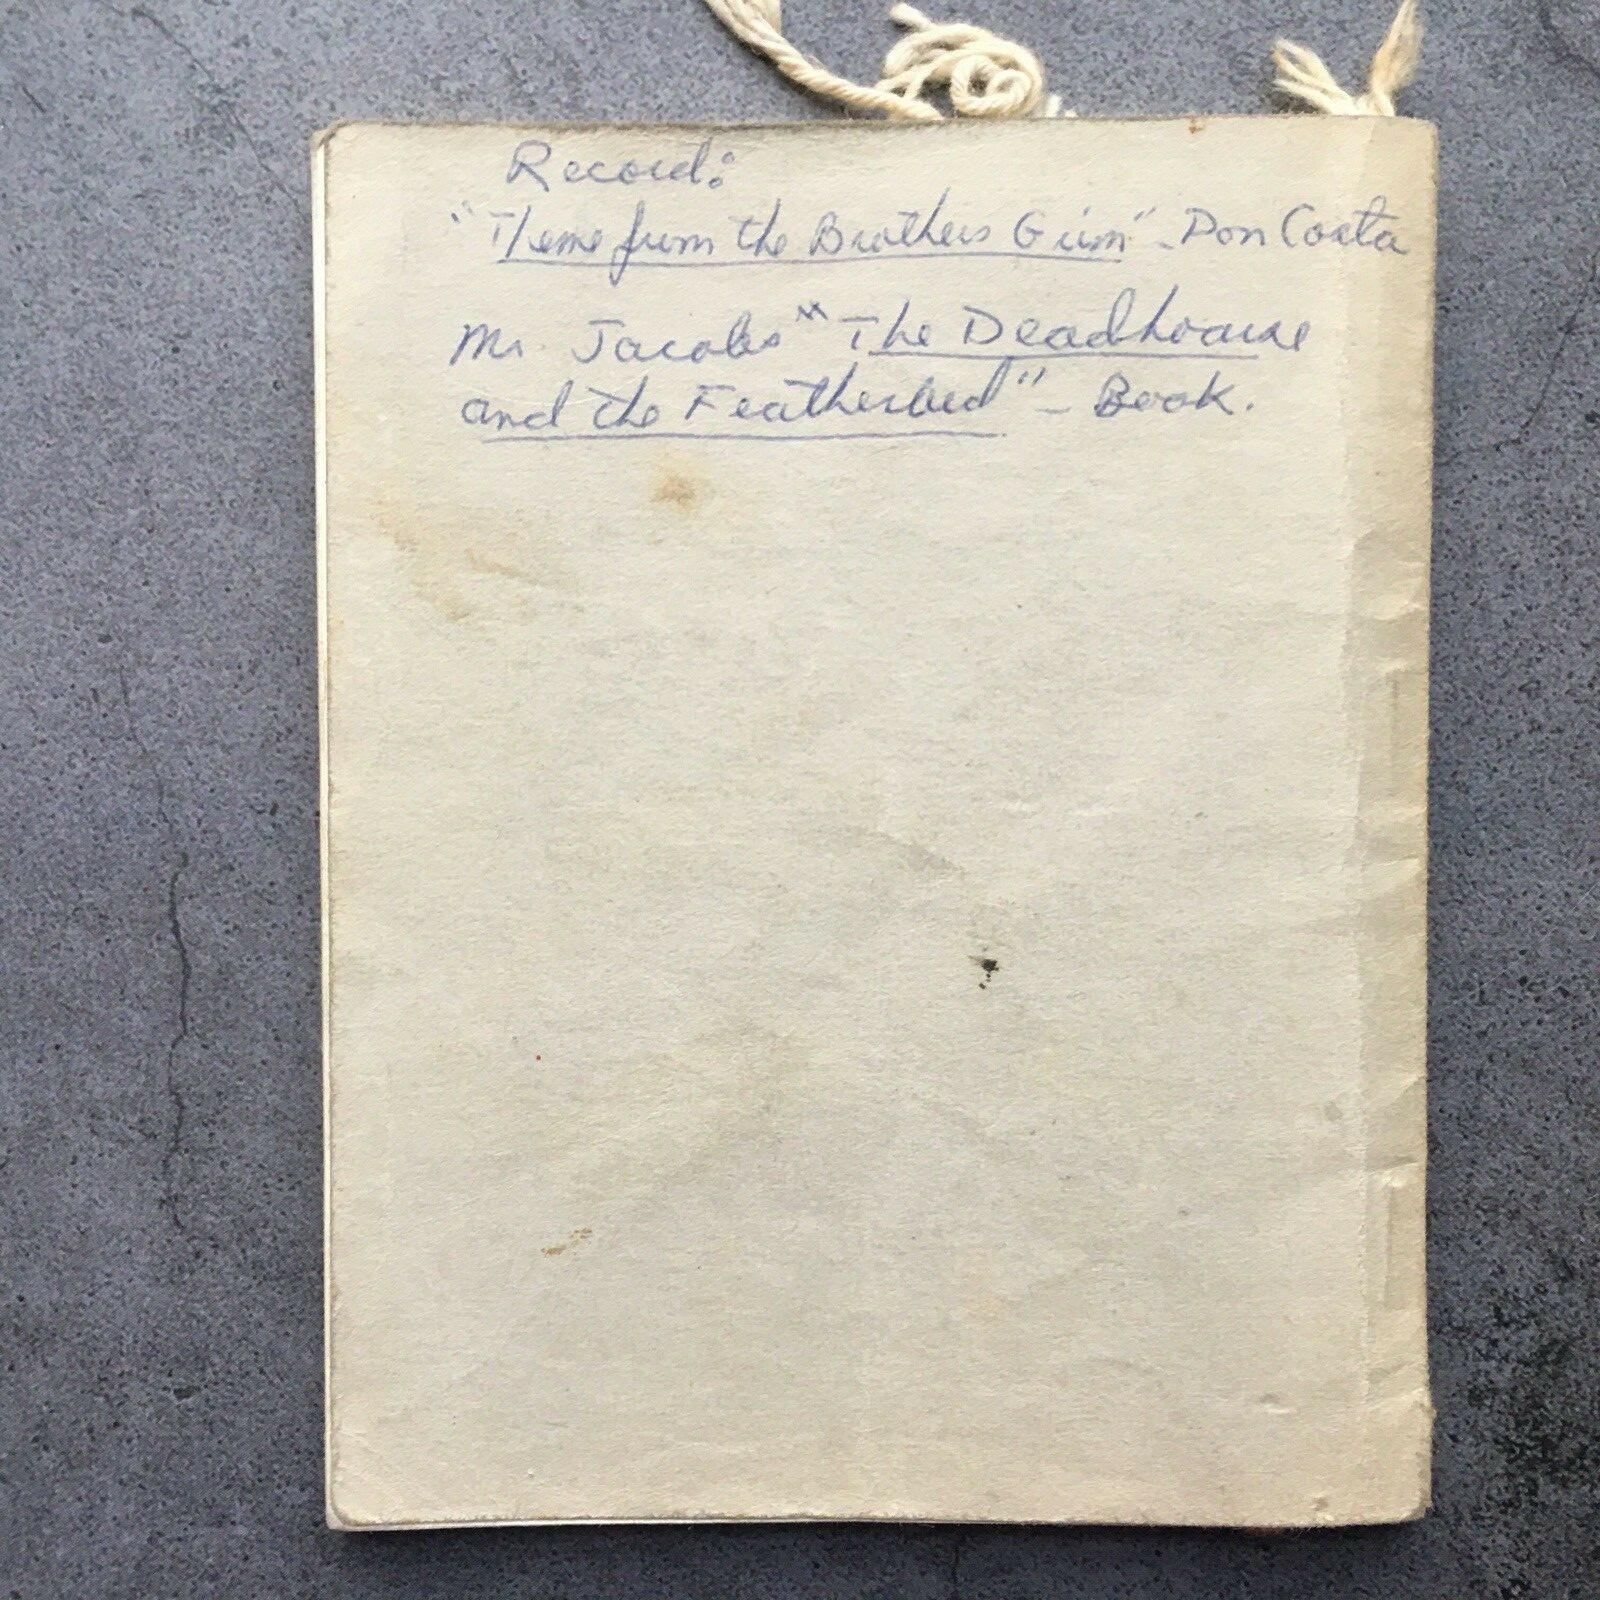 Record:
"Theme from the Brothers Grim" - Don Costa
Mr Jacobs "The Deadhouse
and the Featherbed" - Book.